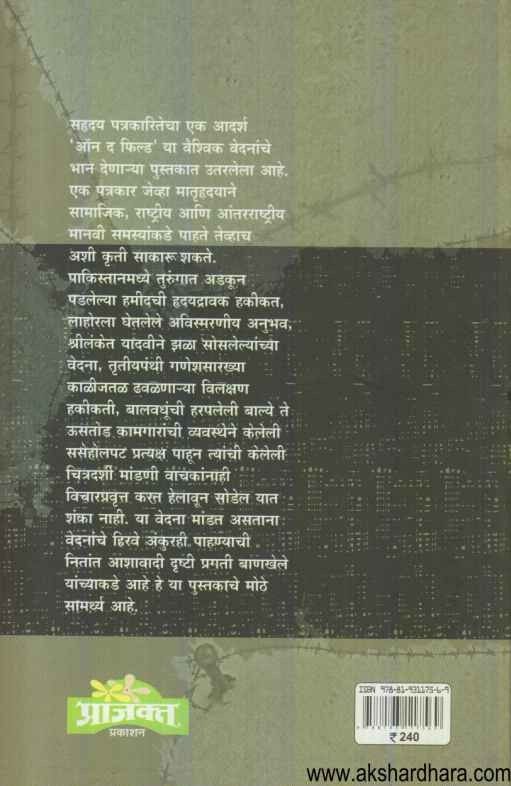 सहृदय पत्रकारितेचा एक आदर्श
'ऑन द फिल्ड' या वैश्विक वेदनांचे
भान देणाऱ्या पुस्तकात उतरलेला आहे.
एक पत्रकार जेव्हा मातृहृदयाने
सामाजिक, राष्ट्रीय आणि आंतरराष्ट्रीय
मानवी समस्यांकडे पाहते तेव्हाच
अशी कृती साकारू शकते.
पाकिस्तानमध्ये तुरुंगात अडकून
पडलेल्या हमीदची हृदयद्रावक हकीकत,
लाहोरला घेतलेले अविस्मरणीय अनुभव,
श्रीलंकेत यादवीने झळा सोसलेल्यांच्या
वेदना, तृतीयपंथी गणेशसारख्या
काळीजतळ ढवळणाऱ्या विलक्षण
हकीकती, बालवधूंची हरपलेली बाल्ये ते
ऊसतोड कामगारांची व्यवस्थेने केलेली
ससेहोलपट प्रत्यक्ष पाहून त्यांची केलेली
चित्रदर्शी मांडणी वाचकांनाही
विचारप्रवृत्त करत हेलावून सोडेल यात
शंका नाही. या वेदना मांडत असताना
वेदनांचे हिरवे अंकुरही पाहण्याची
नितांत आशावादी दृष्टी प्रगती बाणखेले
यांच्याकडे आहे हे या पुस्तकाचे मोठे
सामर्थ्य आहे.
प्राजक्त
प्रकाशन
ISBN 978-81-931175-6-9
₹ 240
www.akshardhara.com